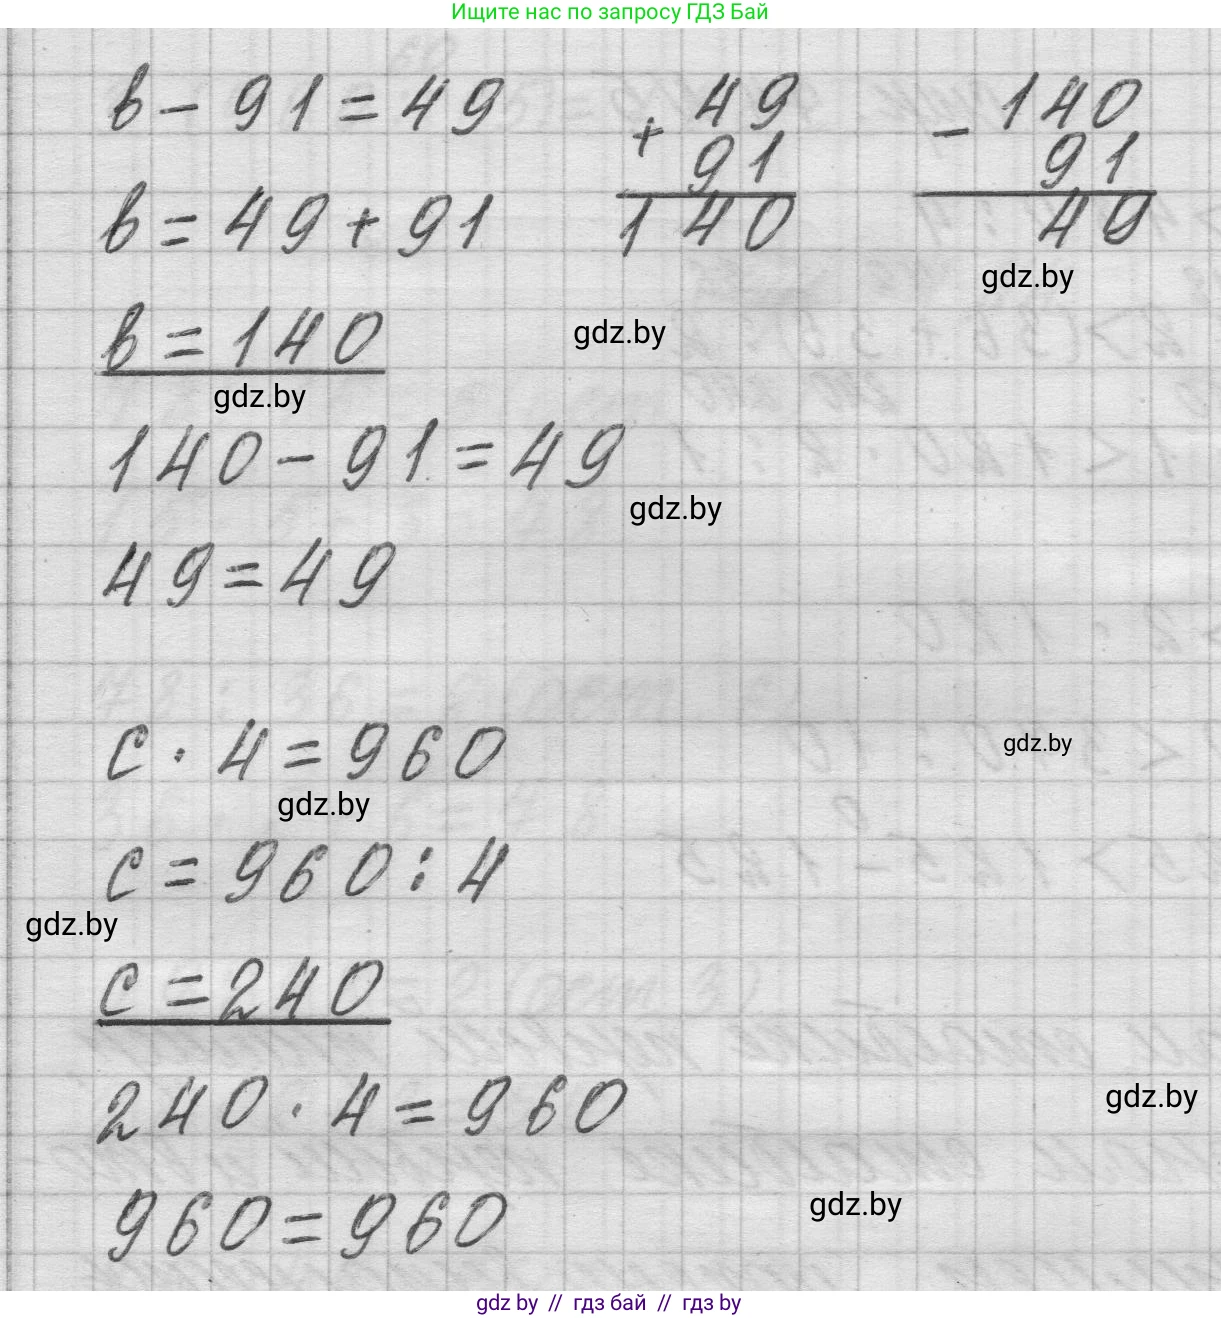 Ищите нас по запросу ГДЗ Бай
в - 91 = 49
+ 49
91
140
- 140
91
49
gdz.by
в = 49 + 91
в = 140
gdz.by
gdz.by
140 - 91 = 49
gdz.by
49 = 49
с · 4 = 960
gdz.by
gdz.by
с = 960 : 4
gdz.by
с = 240
240 · 4 = 960
gdz.by
960 = 960
gdz.by
gdz by // гдз бай // гдз by